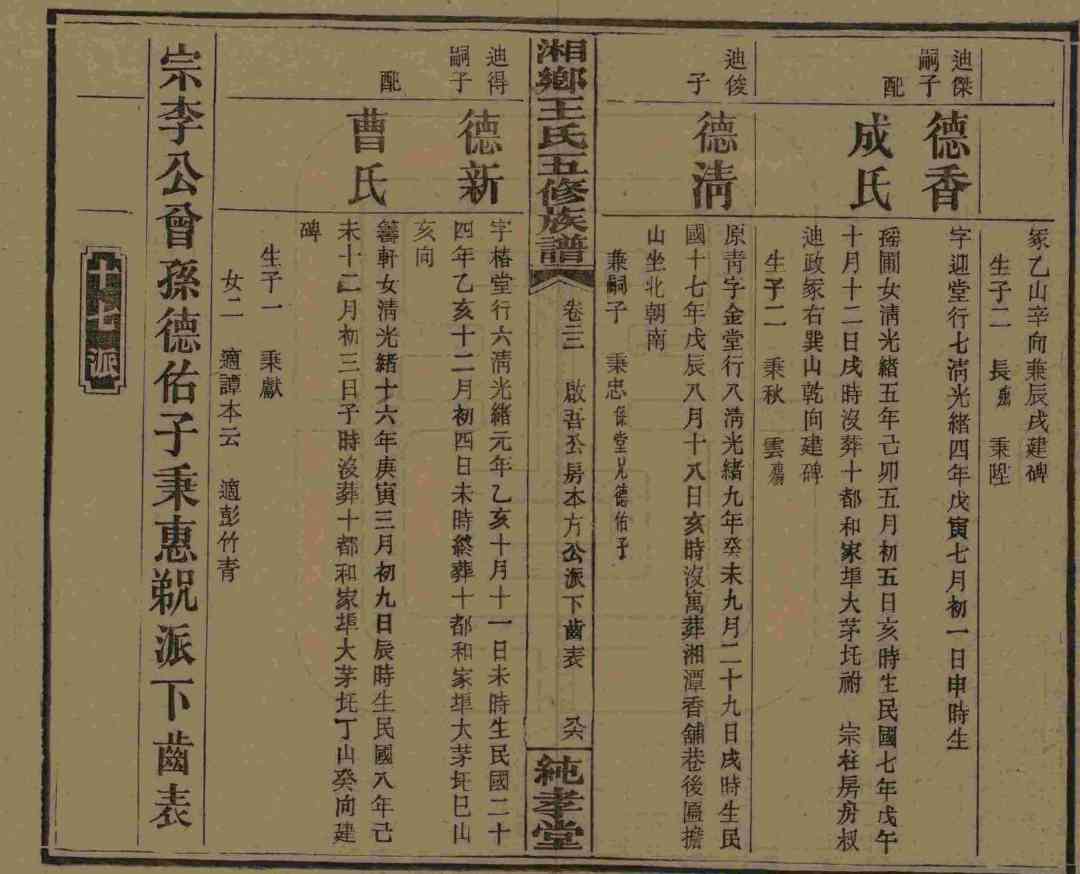 冢乙山辛向兼辰戌建碑
生子二　長殤　秉陞
迪傑嗣子
德香
字迎堂行七清光緒四年戊寅七月初一日申時生
配
成氏
瑤圃女清光緒五年己卯五月初五日亥時生民國七年戊午
十月十二日戌時沒葬十都和家埠大茅坵祔　宗柱房房叔
迪政冢右巽山乾向建碑
生子二　秉秋　雲殤
迪俊子
德清
原青字金堂行八清光緒九年癸未九月二十九日戌時生民
國十七年戊辰八月十八日亥時沒寓葬湘潭香舖巷後匾擔
山坐北朝南
兼嗣子　秉忠保堂兄德佑子
湘鄉王氏五修族譜
卷三　啟吾公房本方公派下齒表
純孝堂
迪得嗣子
德新
字椿堂行六清光緒元年乙亥十月十一日未時生民國二十
四年乙亥十二月初四日未時終葬十都和家埠大茅坵巳山
亥向
配
曹氏
軒女清光緒十六年庚寅三月初九日辰時生民國八年己
未十二月初三日子時沒葬十都和家埠大茅坵丁山癸向建
碑
生子一　秉獻
女二　適譚本云　適彭竹青
宗李公曾孫德佑子秉惠派下齒表
十七派